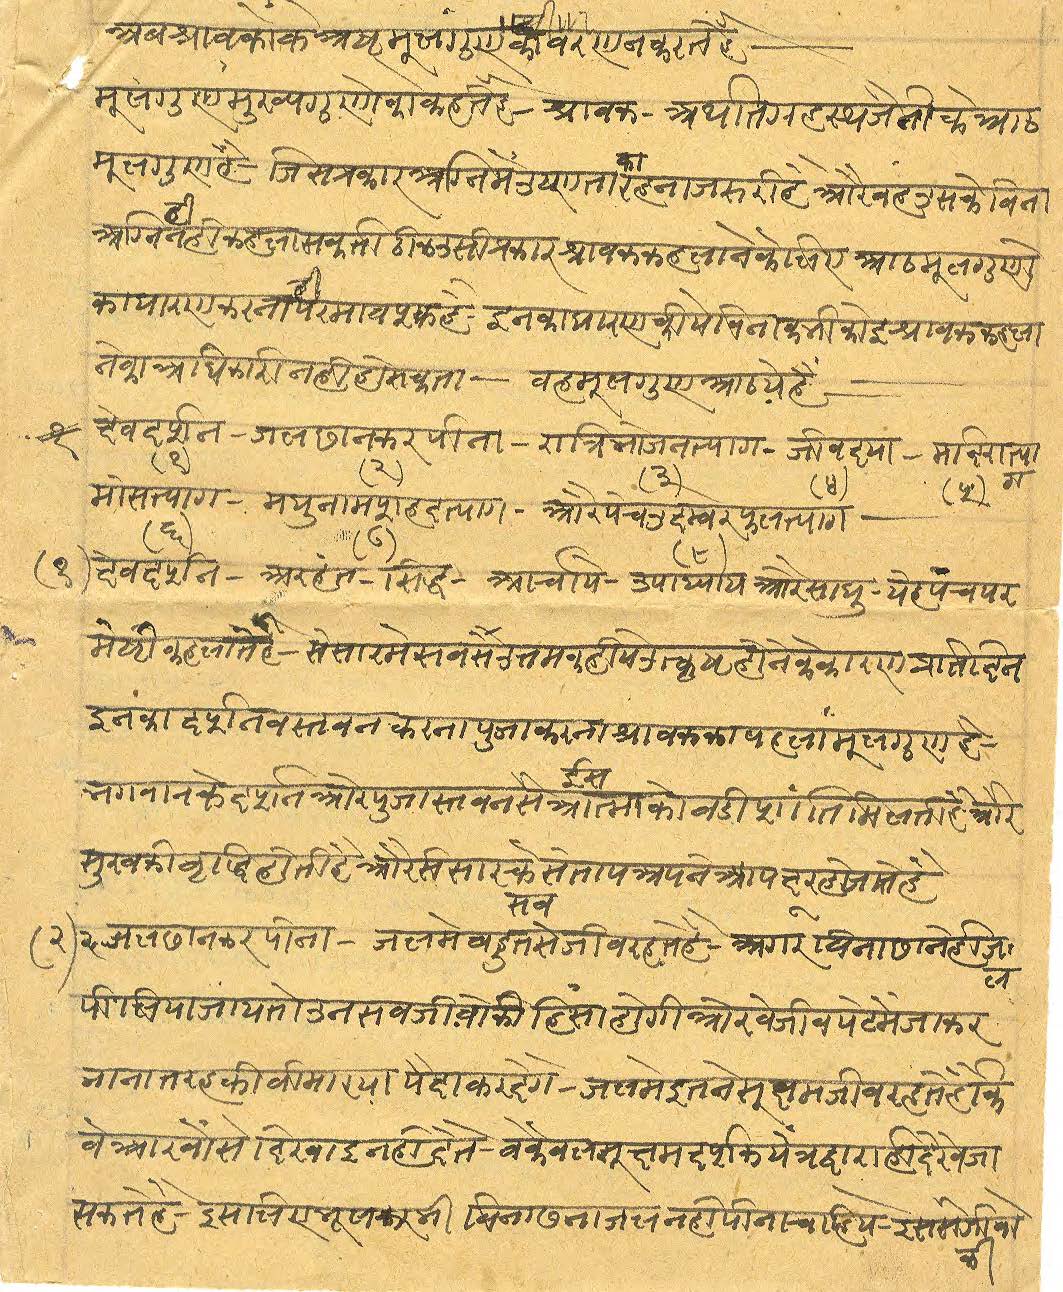 अब श्रावकों के अष्ट मूलगुण का वरणन करते है —
मूलगुण मुख्यगुणो को कहते है - श्रावक - अर्थात ग्रहस्थ जैनी के आठ
मूलगुण है - जिस प्रकार अग्नि में उष्णता का रहना जरुरी है और वह उसके बिना
अग्नि नही कहला सकती ठीक उसी प्रकार श्रावक कहलाने के लिए आठ मूलगुणो
का धारण करना ही परमावश्क है - इनका धारण कीये बिना कभी कोइ श्रावक कहला
ने का अधिकारी नही हो सकता — वह मूलगुण आठ ये है —
देवदर्शन - जल छानकर पीना - रात्रि भोजन त्याग - जीव दया - मदिरा त्याग
(१) (२) (३) (४) (५)
मांस त्याग - मधु नाम शहद त्याग - और पंच उदम्बर फल त्याग —
(६) (७) (८)
(१) देवदर्शन - अरहंत - सिद्ध - आर्चाय - उपाध्याय और साधु - ये ही पंच पर
मेष्ठी कहलाते है - संसार मे सबसे उत्तम होने के कारण प्रातीदिन
इनंका दर्शन व स्तवन करना पुजा करना श्रावक का पहलां मूलगुण है -
भगवान के दर्शन और पुजा स्तवन से ईस आत्मा को बडी शांति मिलती है और
सुख की वृद्धि होती है और संसार के संताप अपने आप दूर हो जाते है
(२) जल छानकर पीना - जल मे बहुत से जीव रहते है - अगर बिना छाने ही जल
पी लिया जाय तो उन सब जीवो की हिंसा होगी और वे जीव पेट मे जाकर
नाना तरह की बीमारया पैदा कर देगे - जल मे इतने सूक्ष्म जीव रहते है कि
वे आखों से दिखाइ नही देते - व केवल सूक्ष्म दर्शक यंत्र द्वारा ही देखे जा
सकते है - इसलिए भूल कर भी बिना छना जल नही पीना चाहिये -